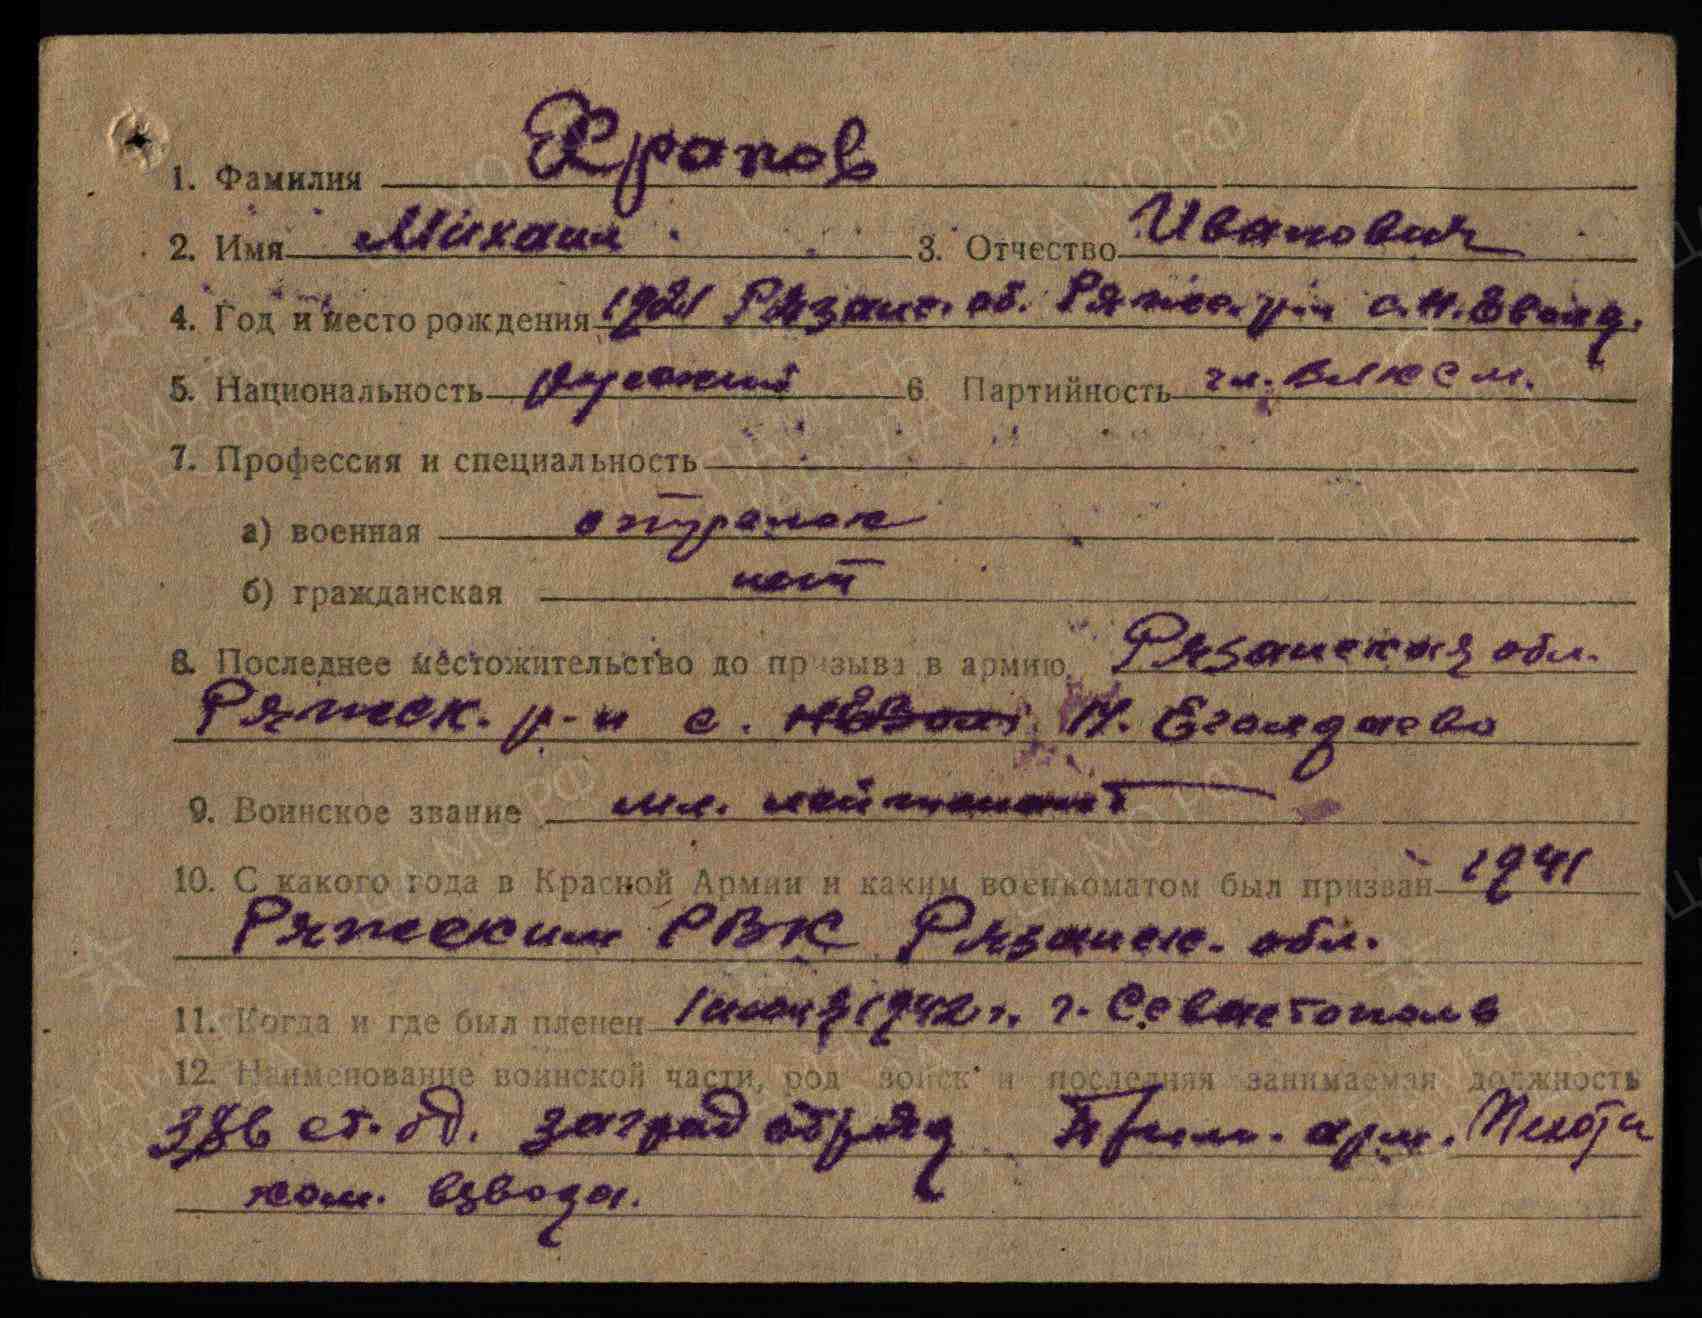 1. Фамилия Храпов
2. Имя Михаил 3. Отчество Иванович
4. Год и место рождения 1921 Рязанс. об. Ряжс. р-н с. Н.
5. Национальность русский 6 Партийность чл. ВЛКСМ.
7. Профессия и специальность
а) военная стрелок
б) гражданская нет
8. Последнее местожительство до призыва в армию Рязанская обл.
Ряжск. р-н с. Н. Еголдаево
9. Воинское звание мл. лейтенант
10. С какого года в Красной Армии и каким военкоматом был призван 1941
Ряжским РВК Рязанск. обл.
11. Когда и где был пленен 1942 г. г. Севастополь
12. Наименование воинской части, род войск и последняя занимаемая должность
386 ст. д. заград отряд Прим. арм. Пехоты
ком. взвода.
ПАМЯТЬ НАРОДА
ЦА МО РФ